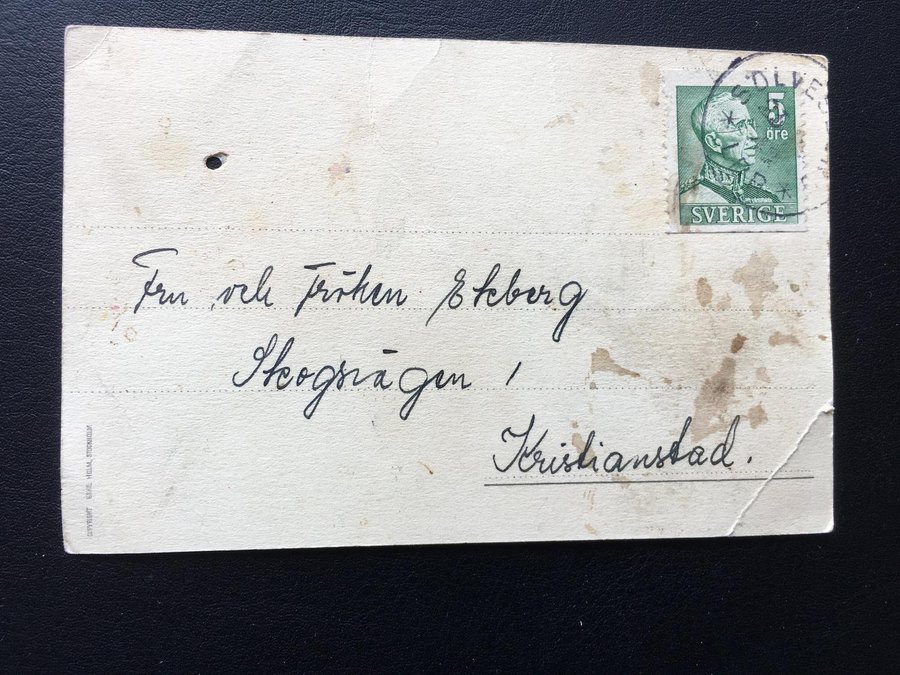 SÖLVES
5
öre
SVERIGE
Fru och Fröken Ekberg
Skogsvägen 1
Kristianstad.
COPYRIGHT STOCKHOLM